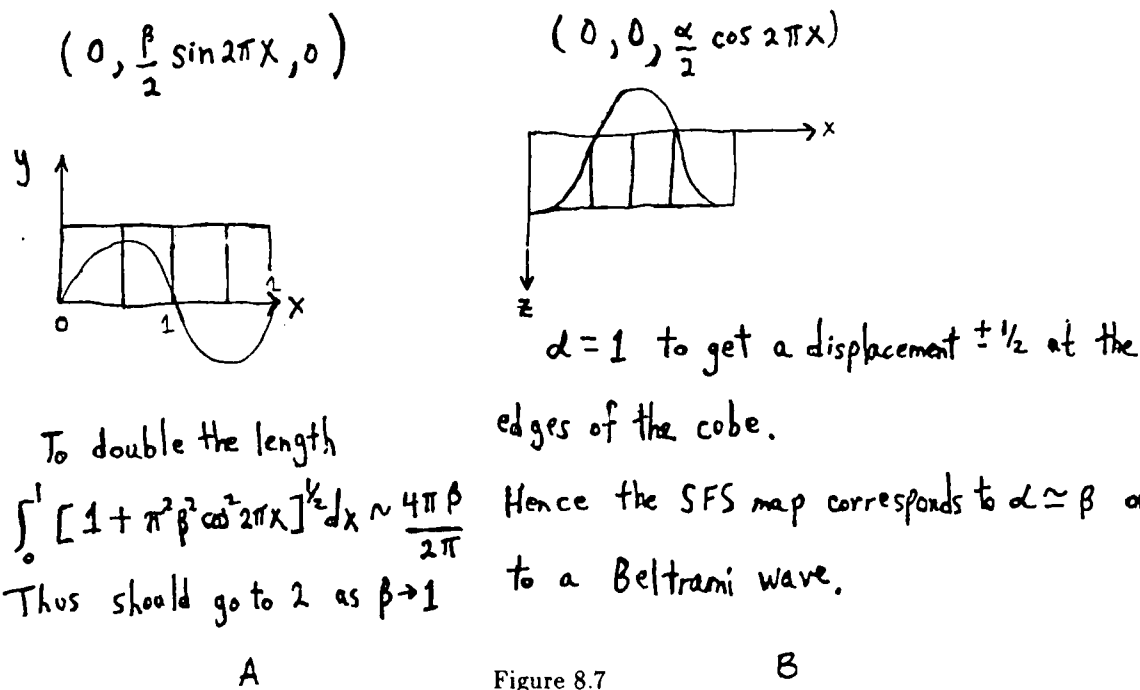 (0, β/2 sin 2πx, 0)
y
0
1
2
x
To double the length
∫₀¹ [1 + π²β² cos² 2πx]^½ dx ~ 4πβ/2π
Thus should go to 2 as β→1
A
(0, 0, α/2 cos 2πx)
x
z
α = 1 to get a displacement ± 1/2 at the
edges of the cobe.
Hence the SFS map corresponds to α ≃ β or
to a Beltrami wave.
B
Figure 8.7